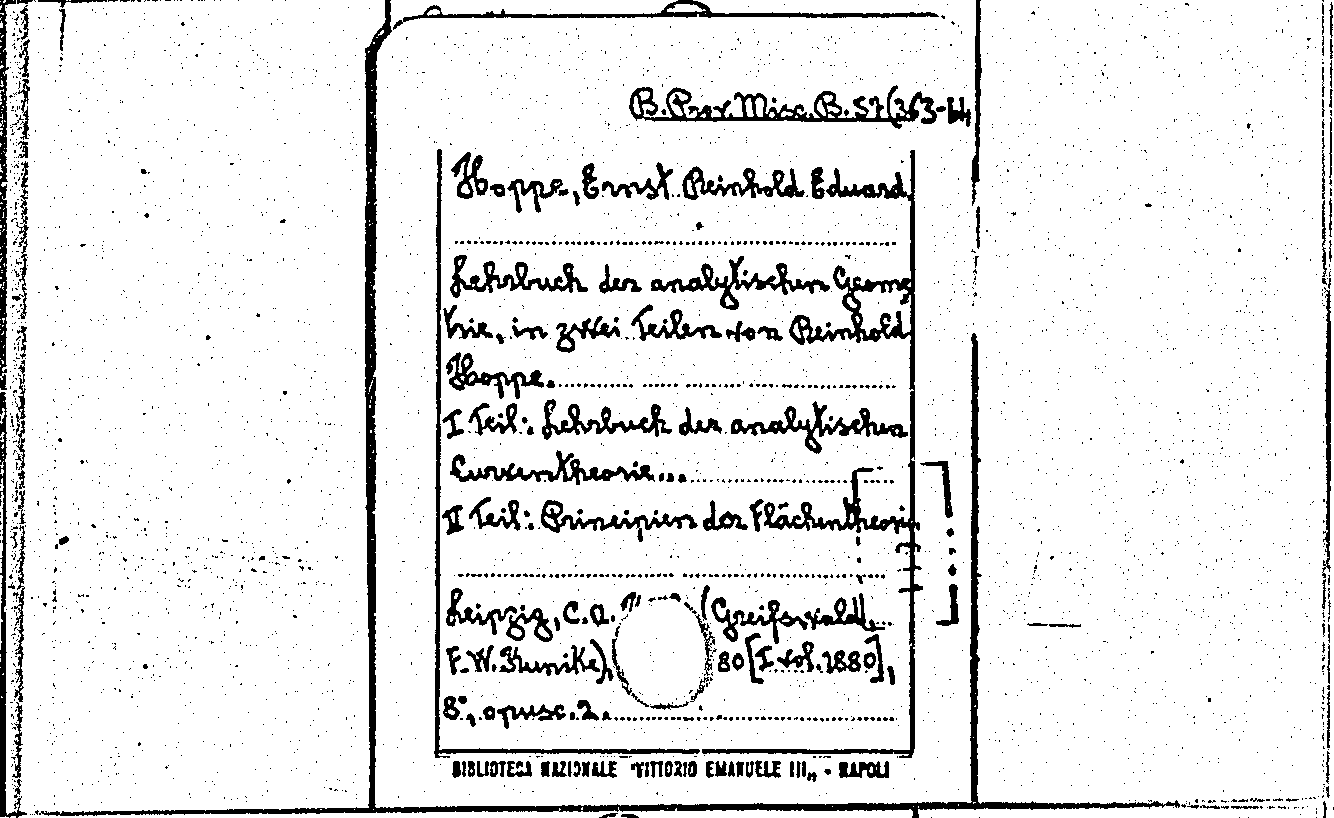 B. Prov. Misc. B. 57(363-64
Hoppe, Ernst Reinhold Eduard
Lehrbuch der analytischen Geome
trie, in zwei Teilen von Reinhold
Hoppe.
I Teil: Lehrbuch der analytischen
Curventheorie...
II Teil: Principien der Flächentheorie
Leipzig, C.A. (Greifswald,
F.W. Kunike), 80 [I vol. 1880],
8°, opusc. 2.
BIBLIOTECA NAZIONALE "VITTORIO EMANUELE III„ - NAPOLI